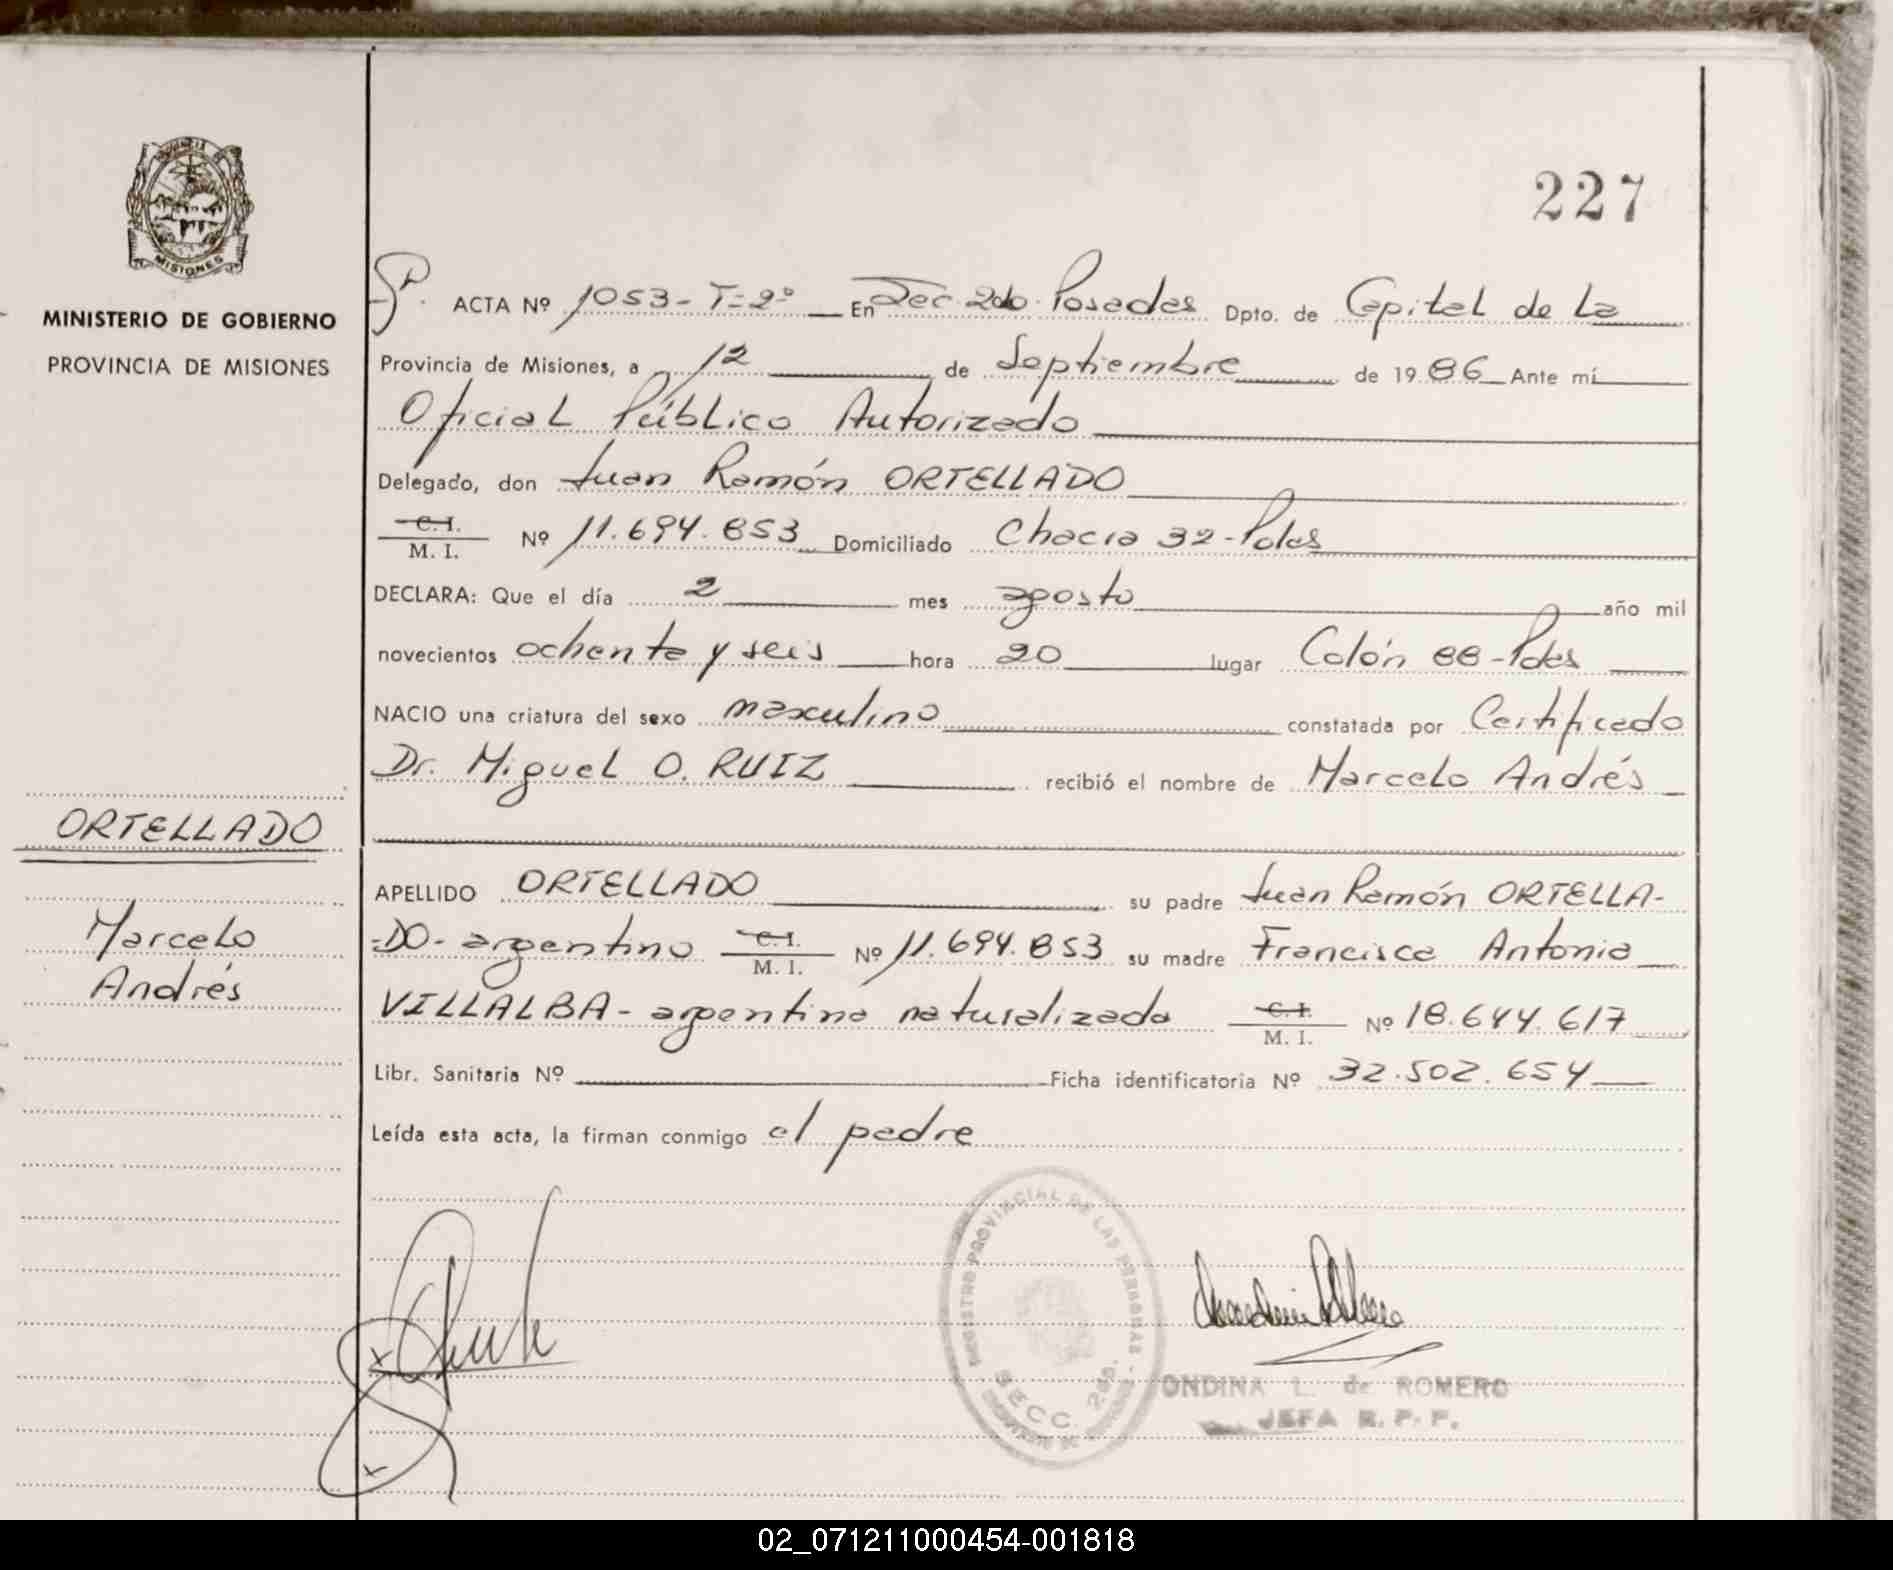 227
MISIONES
MINISTERIO DE GOBIERNO
PROVINCIA DE MISIONES
ORTELLADO
Marcelo
Andrés
ACTA Nº 1053 - T=2º En Sec. 2da. Posadas Dpto. de Capital de La
Provincia de Misiones, a 12 de Septiembre de 1986 Ante mí
Oficial Público Autorizado
Delegado, don Juan Ramón ORTELLADO
C. I.
M. I. Nº 11.694.853 Domiciliado Chacra 32 - Pdas
DECLARA: Que el día 2 mes agosto año mil
novecientos ochenta y seis hora 20 lugar Colón 88 - Pdas
NACIO una criatura del sexo masculino constatada por Certificado
Dr. Miguel O. RUIZ recibió el nombre de Marcelo Andrés
APELLIDO ORTELLADO su padre Juan Ramón ORTELLA-
=DO- argentino C. I. M. I. Nº 11.694.853 su madre Francisca Antonia
VILLALBA - argentina naturalizada C. I. M. I. Nº 18.644.617
Libr. Sanitaria Nº Ficha identificatoria Nº 32.502.654
Leída esta acta, la firman conmigo el padre
REGISTRO PROVINCIAL DE LAS PERSONAS
SECC. 2da.
ONDINA L. de ROMERO
JEFA R. P. P.
02_071211000454-001818